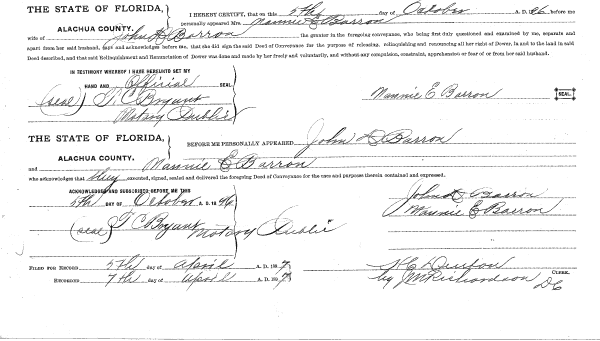 THE STATE OF FLORIDA,
ALACHUA COUNTY.
I HEREBY CERTIFY, that on this 5th day of October A. D. 96 before me
personally appeared Mrs. Nannie E Barron
wife of John Barron the grantor in the foregoing conveyance, who being first duly questioned and examined by me, separate and
apart from her said husband, says and acknowledges before me, that she did sign the said Deed of Conveyance for the purpose of releasing, relinquishing and renouncing all her right of Dower, in and to the land in said
Deed described, and that said Relinquishment and Renunciation of Dower was done and made by her freely and voluntarily, and without any compulsion, constraint, apprehension or fear of or from her said husband.
IN TESTIMONY WHEREOF I HAVE HEREUNTO SET MY
HAND AND Official SEAL
(seal) T C Bryant
Notary Public
Nannie E Barron SEAL
THE STATE OF FLORIDA,
ALACHUA COUNTY.
BEFORE ME PERSONALLY APPEARED John Barron
and Nannie E Barron
who acknowledges that they executed, signed, sealed and delivered the foregoing Deed of Conveyance for the uses and purposes therein contained and expressed.
ACKNOWLEDGED AND SUBSCRIBED BEFORE ME THIS
5th DAY OF October A. D. 1896
(seal) T C Bryant Notary Public
John Barron
Nannie E Barron
FILED FOR RECORD 5th day of April A. D. 1897
RECORDED 7th day of April A. D. 1897
H C Denton CLERK.
by J M Richardson DC